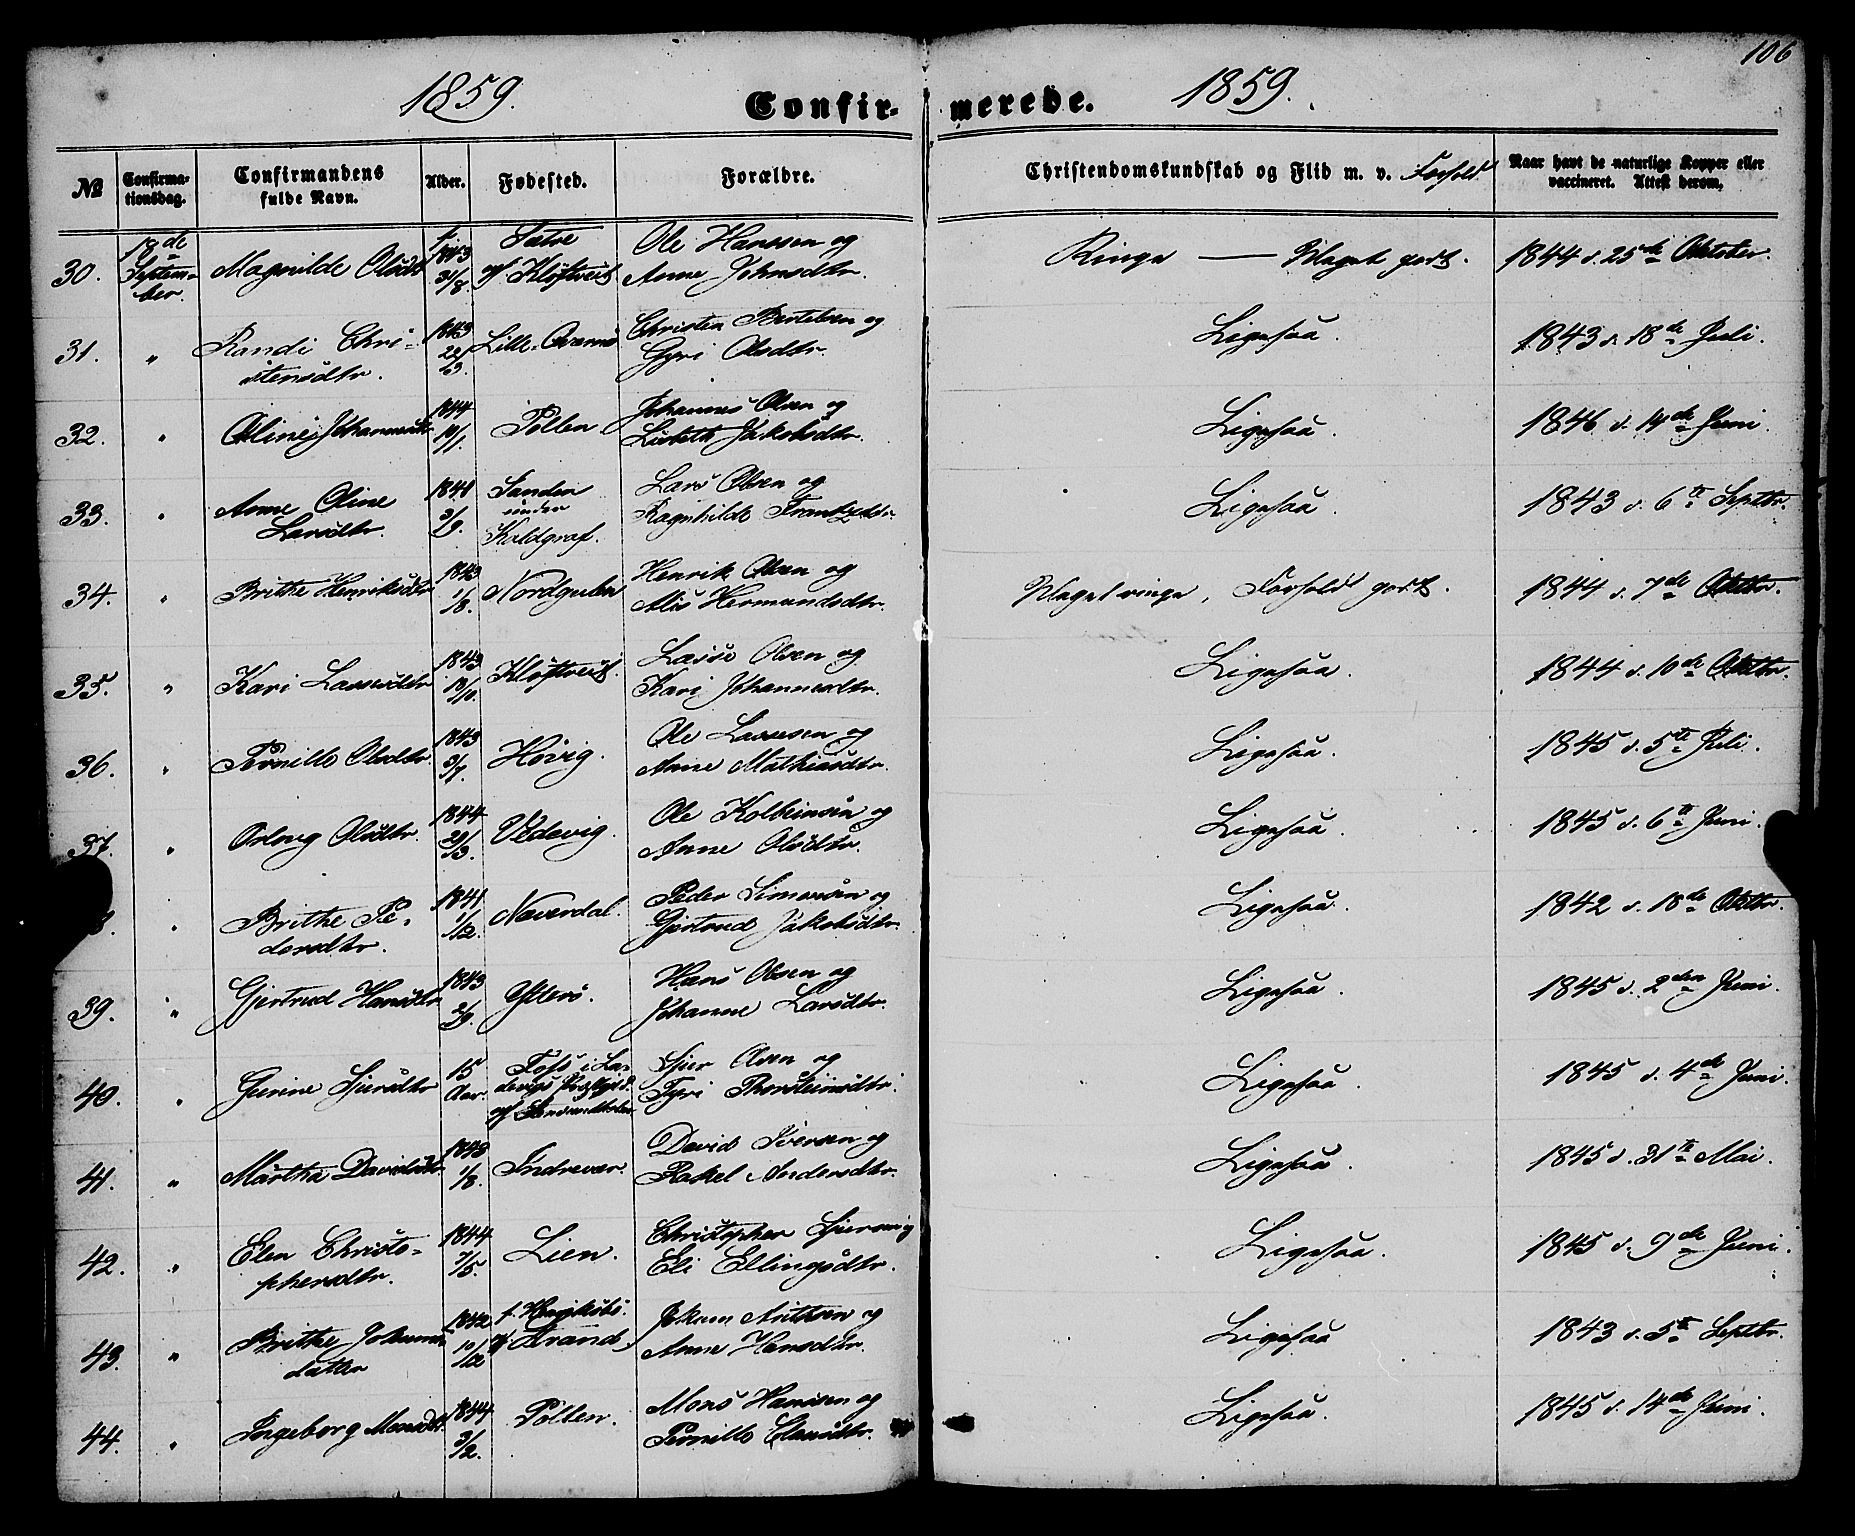 106
1859.
Confir-
merede.
1859.
№
Confirma-
tionsdag.
Confirmandens
fulde Navn.
Alder.
Fødested.
Forældre.
Christendomskundskab og Flid m. v. Forhold
Naar havt de naturlige Kopper eller
vaccineret. Attest derom.
30. 18de Septem-
ber.
Magnilde Olsdtr
f. 1843 31/8
af Kløftveit
Ole Hanssen og
Anne Johnsdtr.
Ringe — Meget godt.
1844 d. 25de Oktober.
31. "
Randi Chri-
stensdtr.
1843
Lille-
Christen Bertelsen og
Gyri Olsdtr.
Ligesaa.
1843 d. 18de Juli.
32. "
Oline Johannesdtr
1844
Pollen
Johannes Olsen og
Lisbeth Jakobsdtr.
Ligesaa.
1846 d. 14de Juni.
33. "
Anne Oline
Larsdtr.
Sanden
under
Kaldgraf.
Lars Olsen og
Ragnhilde Frantzdtr.
Ligesaa.
1843 d. 6te Septbr.
34. "
Brithe Henriksdtr
1843 1/8.
Nordgulen
Henrik Olsen og
Alis Hermundsdtr.
Meget ringe, Forhold godt.
1844 d. 7de Oktbr.
35. "
Kari Lassesdtr
1843
Kløftveit.
Lasse Olsen og
Kari Johannesdtr.
Ligesaa.
1844 d. 10de Oktbr.
36. "
Pernille Olsdtr.
1843 3/7.
Høvig.
Ole Lassesen og
Anne Mathiasdtr.
Ligesaa.
1845 d. 5te Juli.
37. "
Oslaug Olsdtr.
1844 29/3.
Vedvig.
Ole Kolbeinsen og
Anne Olsdtr.
Ligesaa.
1845 d. 6te Juni.
8. "
Brithe Pe-
dersdtr.
1841 1/12.
Naverdal.
Peder Simonsen og
Gjertrud Jakobsdtr.
Ligesaa.
1842 d. 18de Oktbr.
39. "
Gjertrud Hansdtr
1843 2/9.
Ytterø.
Hans Olsen og
Johanne Larsdtr.
Ligesaa.
1845 d. 2den Juni.
40. "
Gurine Sjursdtr
15
Aar.
Foss i La-
Sjur Olsen og
Gyri Thorsteinsdtr.
Ligesaa.
1845 d. 4de Juni.
41. "
Martha Davidsdtr.
1843 1/8.
Indrevær.
David Iversen og
Rakel Andersdtr.
Ligesaa.
1845 d. 31te Mai.
42. "
Elen Christo-
phersdtr.
1844 7/5.
Lien.
Christopher Sjursen og
Eli Ellingsdtr.
Ligesaa.
1845 d. 9de Juni.
43. "
Brithe
datter
1842 10/12
Strand.
Jokum Anthsen og
Anne Hansdtr.
Ligesaa
1843 d. 5te Septbr.
44. "
Ingeborg Monsdtr.
1844 3/2.
Pollen.
Mons Hansen og
Pernille Clausdtr.
Ligesaa.
1845 d. 14de Juni.